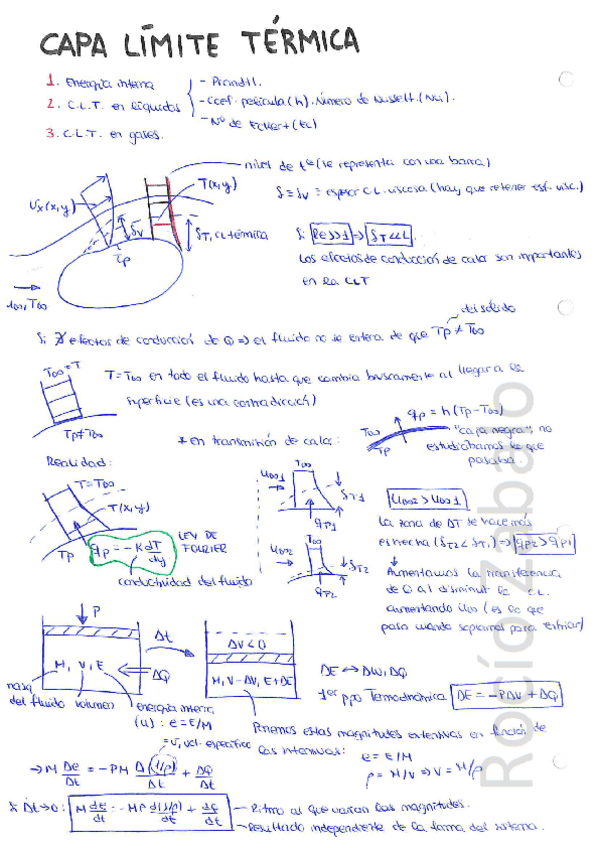 CAPA LÍMITE TÉRMICA
1. Energía interna
2. C.L.T. en líquidos
3. C.L.T. en gases.
- Prandtl.
- Coef. película (h). Número de Nusselt. (Nu).
- Nº de Eckert (Ec)
nivel de tª (se representa con una barra)
Vx(x,y)
T(x,y)
δ ≡ δv ≡ espesor C.L. viscosa (hay que retener esf. visc.)
δv
δT, CL térmica
Tp
Si Re>>1 ⇒ δT<<L
Los efectos de conducción de calor son importantes
en la CLT
U∞, T∞
del sólido
Si ∄ efectos de conducción de Q ⇒ el fluido no se entera de que Tp ≠ T∞
T∞ = T
T = T∞ en todo el fluido hasta que cambia bruscamente al llegar a la
superficie (es una contradicción)
Tp ≠ T∞
* En transmisión de calor:
T∞
Tp
qp = h(Tp - T∞)
"caja negra", no
estudiábamos lo que
pasaba.
Realidad:
T = T∞
T(x,y)
Tp
qp = -K dT/dy
LEY DE
FOURIER
conductividad del fluido
U∞1
T∞
δT1
qp1
U∞2
T∞
δT2
qp2
U∞2 > U∞1
La zona de ΔT se hace más
estrecha (δT2 < δT1) ⇒ qp2 > qp1
Aumentamos la transferencia
de Q al disminuir la C.L.
aumentando U∞ (es lo que
pasa cuando soplamos para enfriar)
P
Δt
M, V, E
ΔQ
ΔV<0
M, V-ΔV, E+ΔE
masa
del fluido
volumen
energía interna
(u): e = E/M
ΔE ↔ ΔW, ΔQ
1er ppo Termodinámica ΔE = -PΔV + ΔQ
Ponemos estas magnitudes extensivas en función de
las intensivas:
= v, vol. específico
e = E/M
ρ = M/V ⇒ V = M/ρ
→ M Δe/Δt = -PM Δ(1/ρ)/Δt + ΔQ/Δt
Si Δt→0: M de/dt = -MP d(1/ρ)/dt + dQ/dt
- Ritmo al que varían las magnitudes.
- Resultado independiente de la forma del sistema.
Rocío Zabato